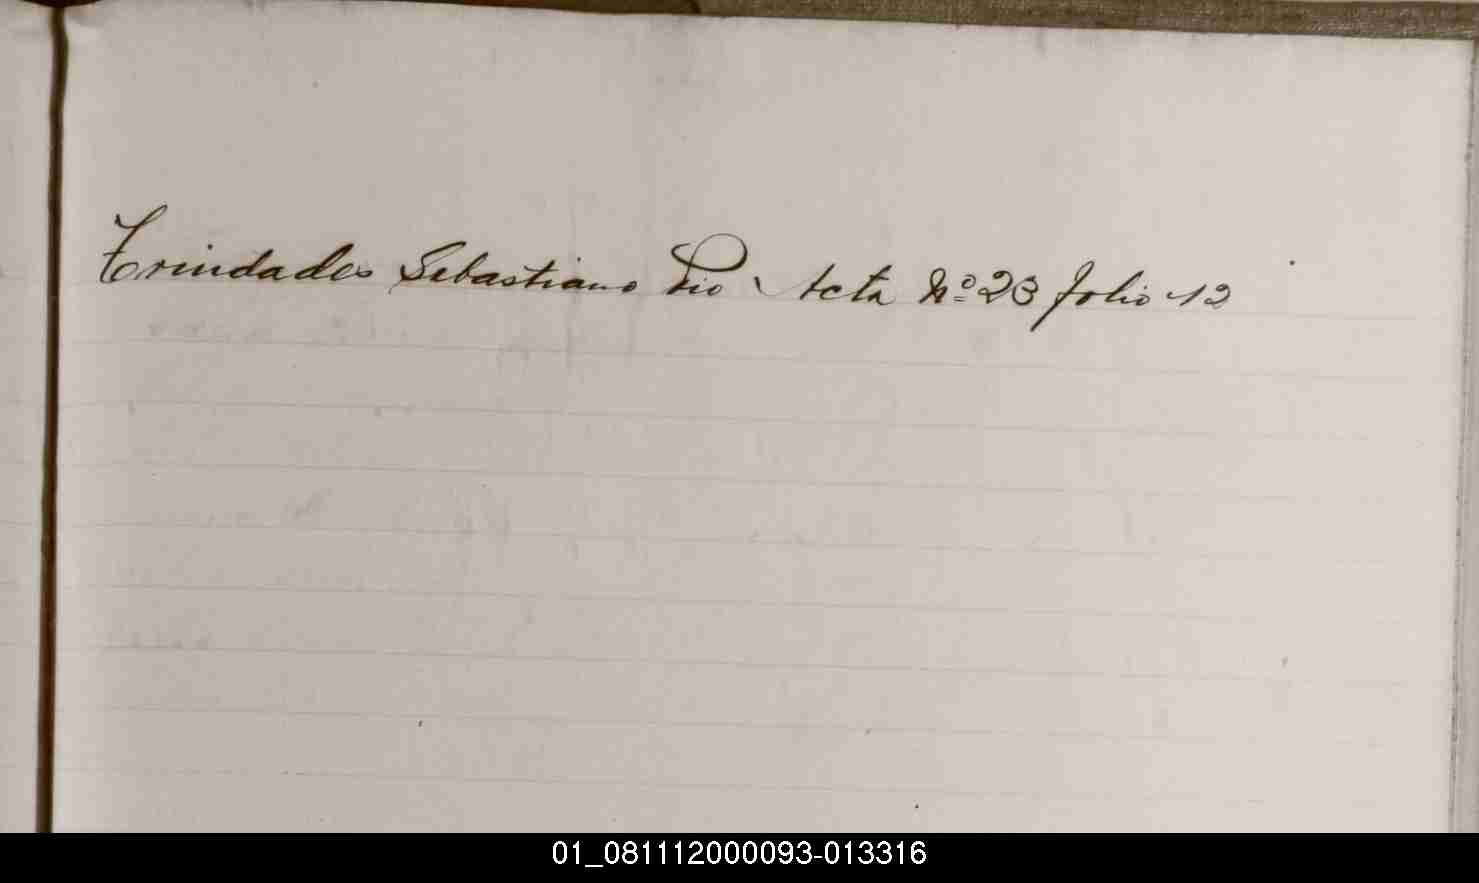 Trindades Sebastiano Pio Acta Nº 23 folio 12
01_081112000093-013316